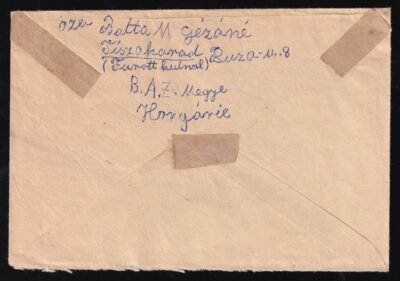 Balta M Gézáné
Tiszakarad Buza-u. 8
(Furott kutnál)
B.A.Z. Megye
Hongárie